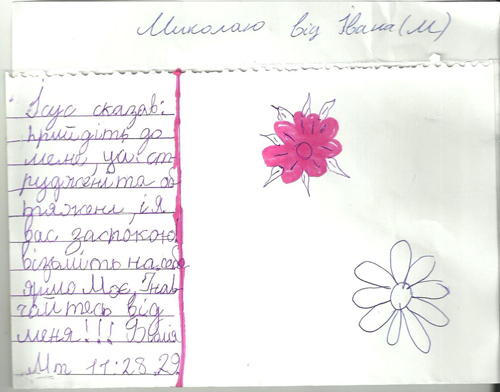 Миколаю від Івана (М)
Ісус сказав:
прийдіть до
мене, усі ст
руджені та об
тяжені, і Я
вас заспокою
візьміть на себе
ярмо Моє, І нав
чайтесь від
мене!!!
Мт 11:28,29